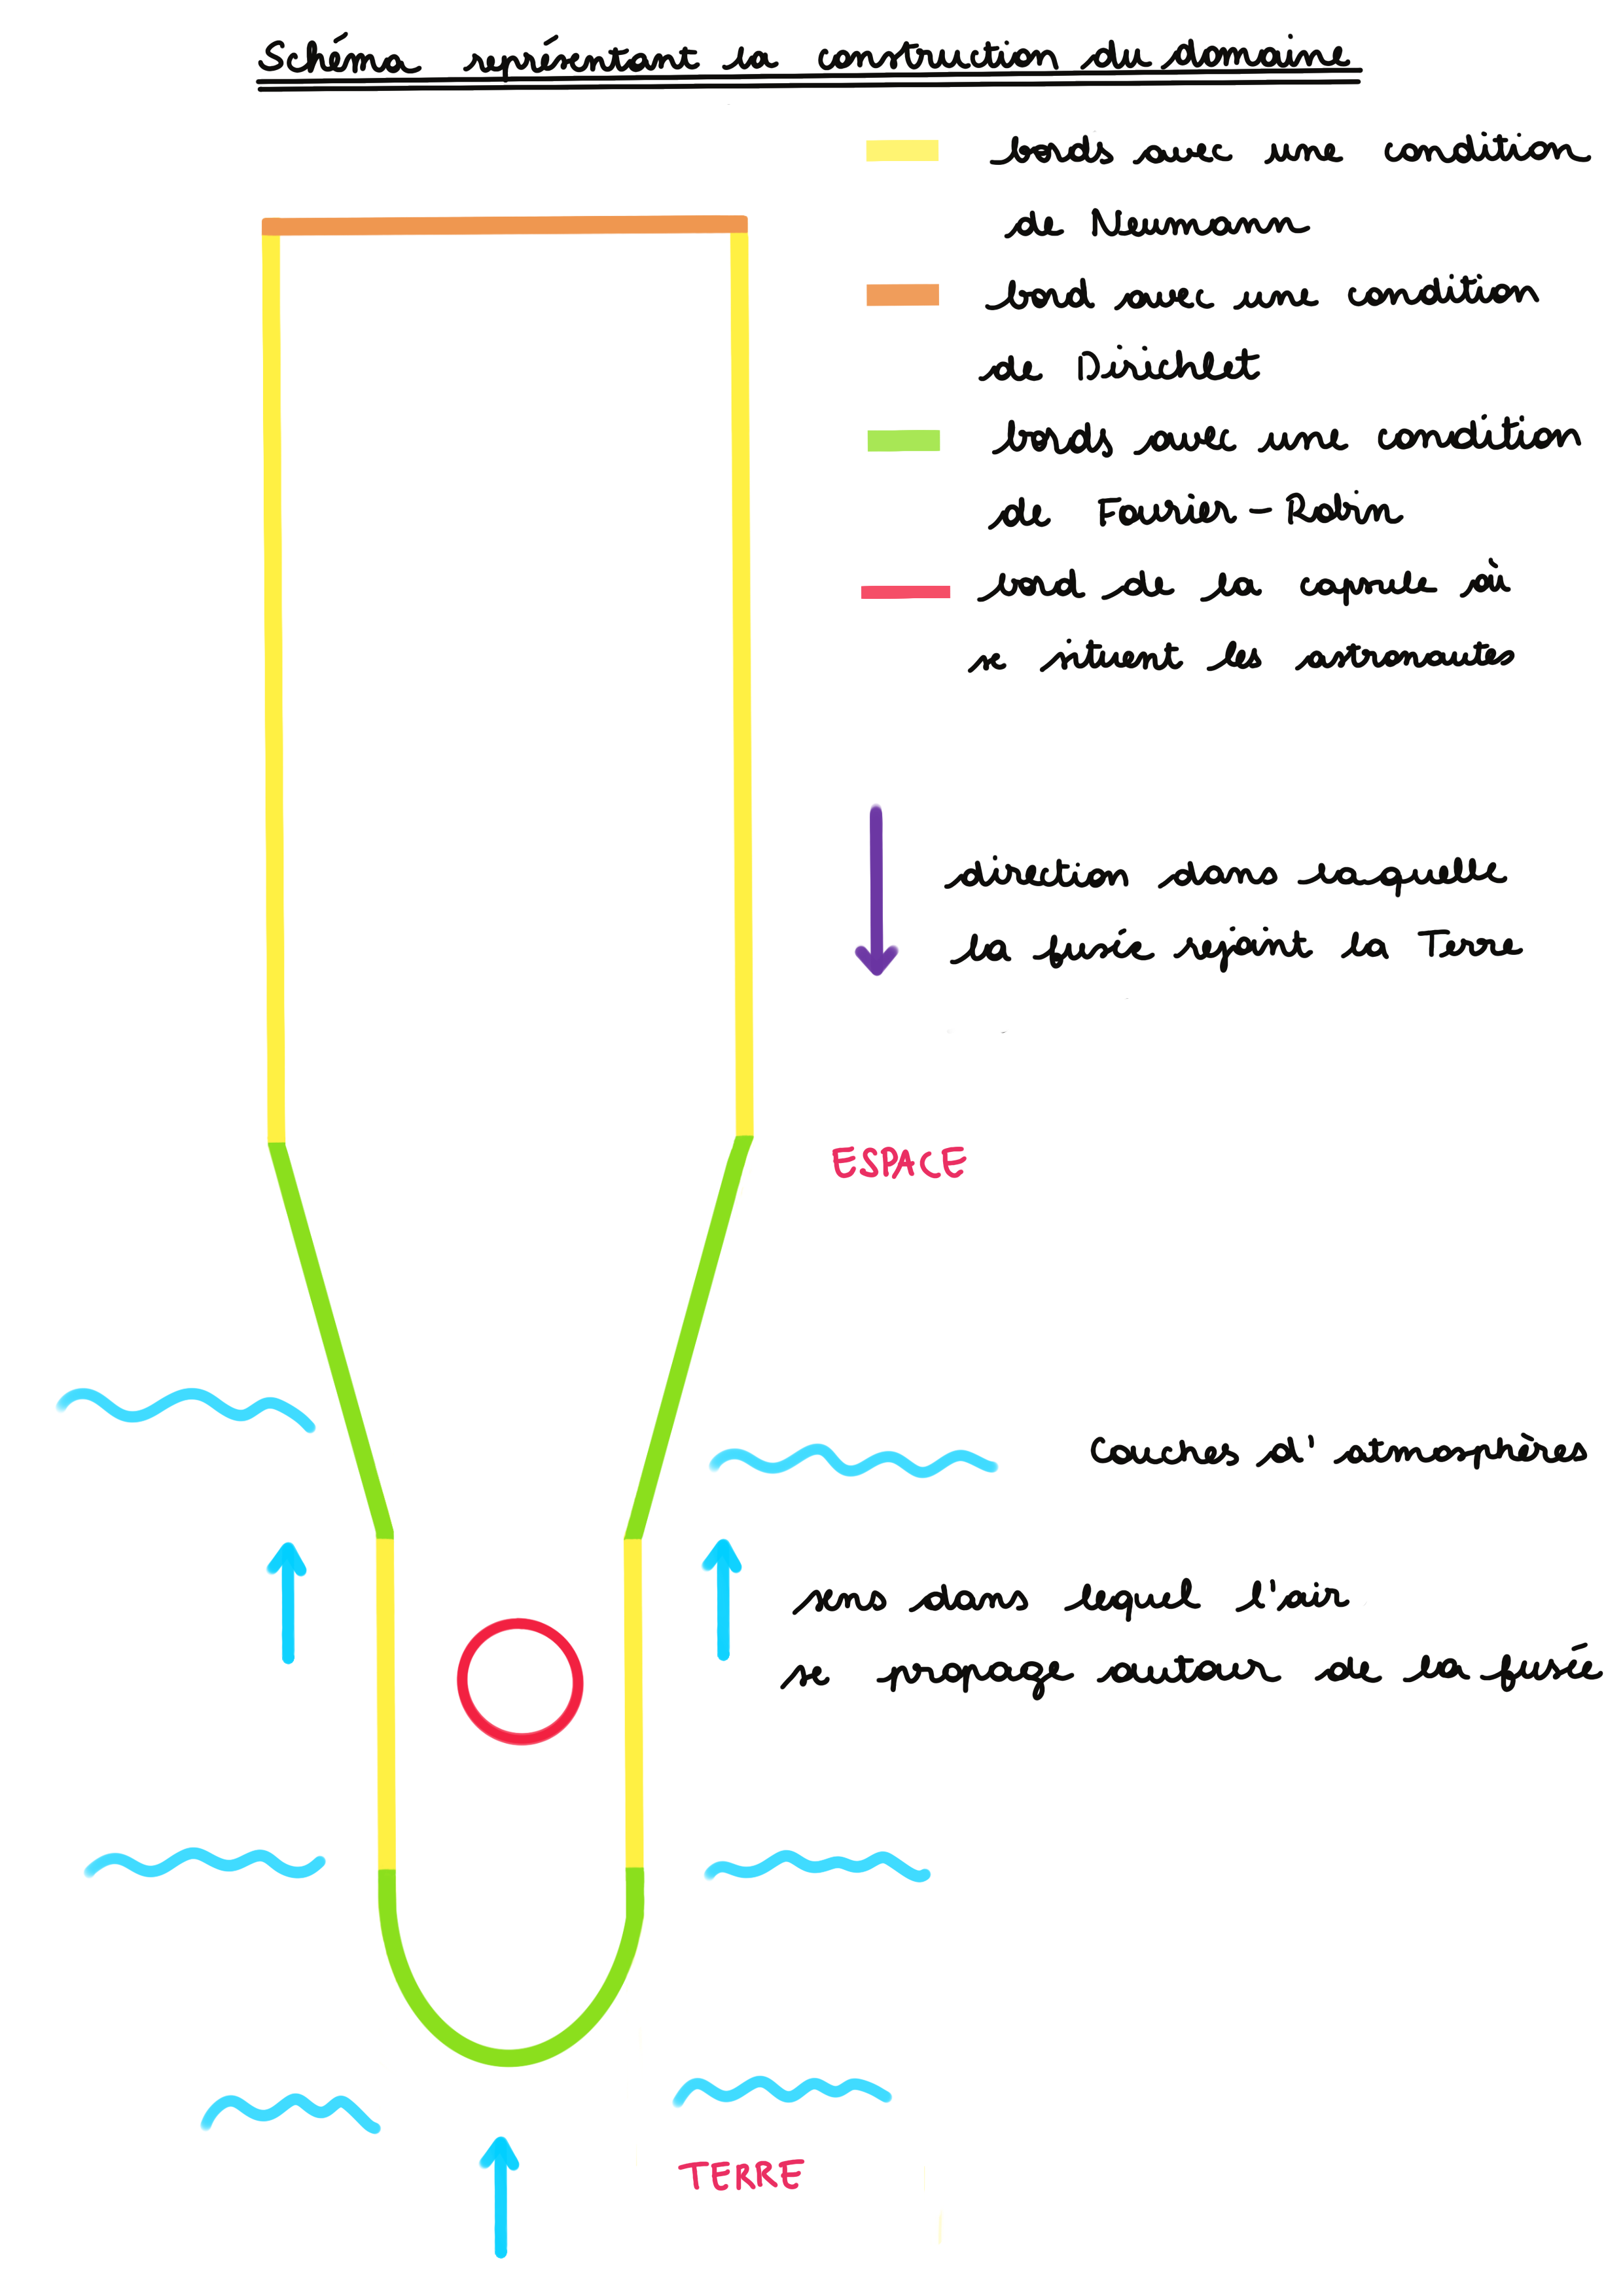 Schéma représentant la construction du domaine
bords avec une condition
de Neumann
bord avec une condition
de Dirichlet
bords avec une condition
de Fourier - Robin
bord de la capsule où
se situent les astronautes
direction dans laquelle
la fusée rejoint la Terre
ESPACE
Couches d'atmosphères
sens dans lequel l'air
se propage autour de la fusée
TERRE